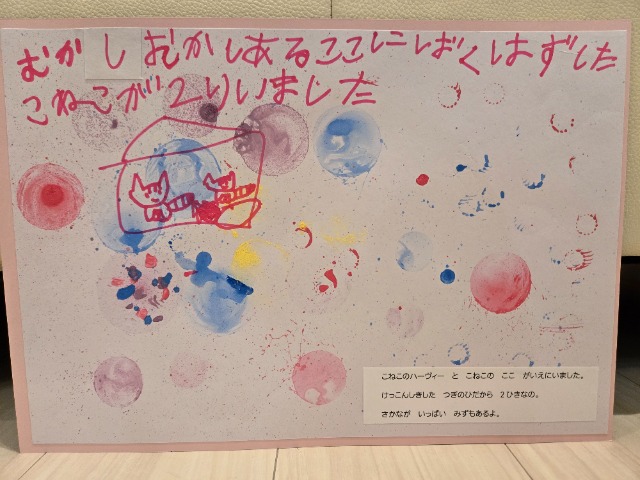 むかし おむかしあるここにしばくはずした
こねこが2りいました
こねこのハーヴィー と こねこの ここ がいえにいました。
けっこんしきした つぎのひだから 2ひきなの。
さかなが いっぱい みずもあるよ。